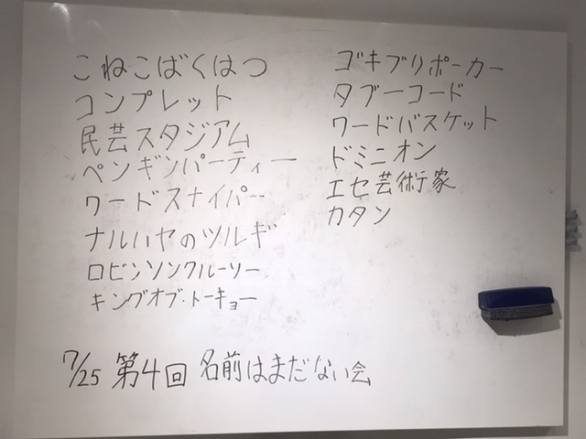 こねこばくはつ
コンプレット
民芸スタジアム
ペンギンパーティー
ワードスナイパー
ナルハヤのツルギ
ロビンソンクルーソー
キングオブ・トーキョー
ゴキブリポーカー
タブーコード
ワードバスケット
ドミニオン
エセ芸術家
カタン
7/25 第4回 名前はまだない会